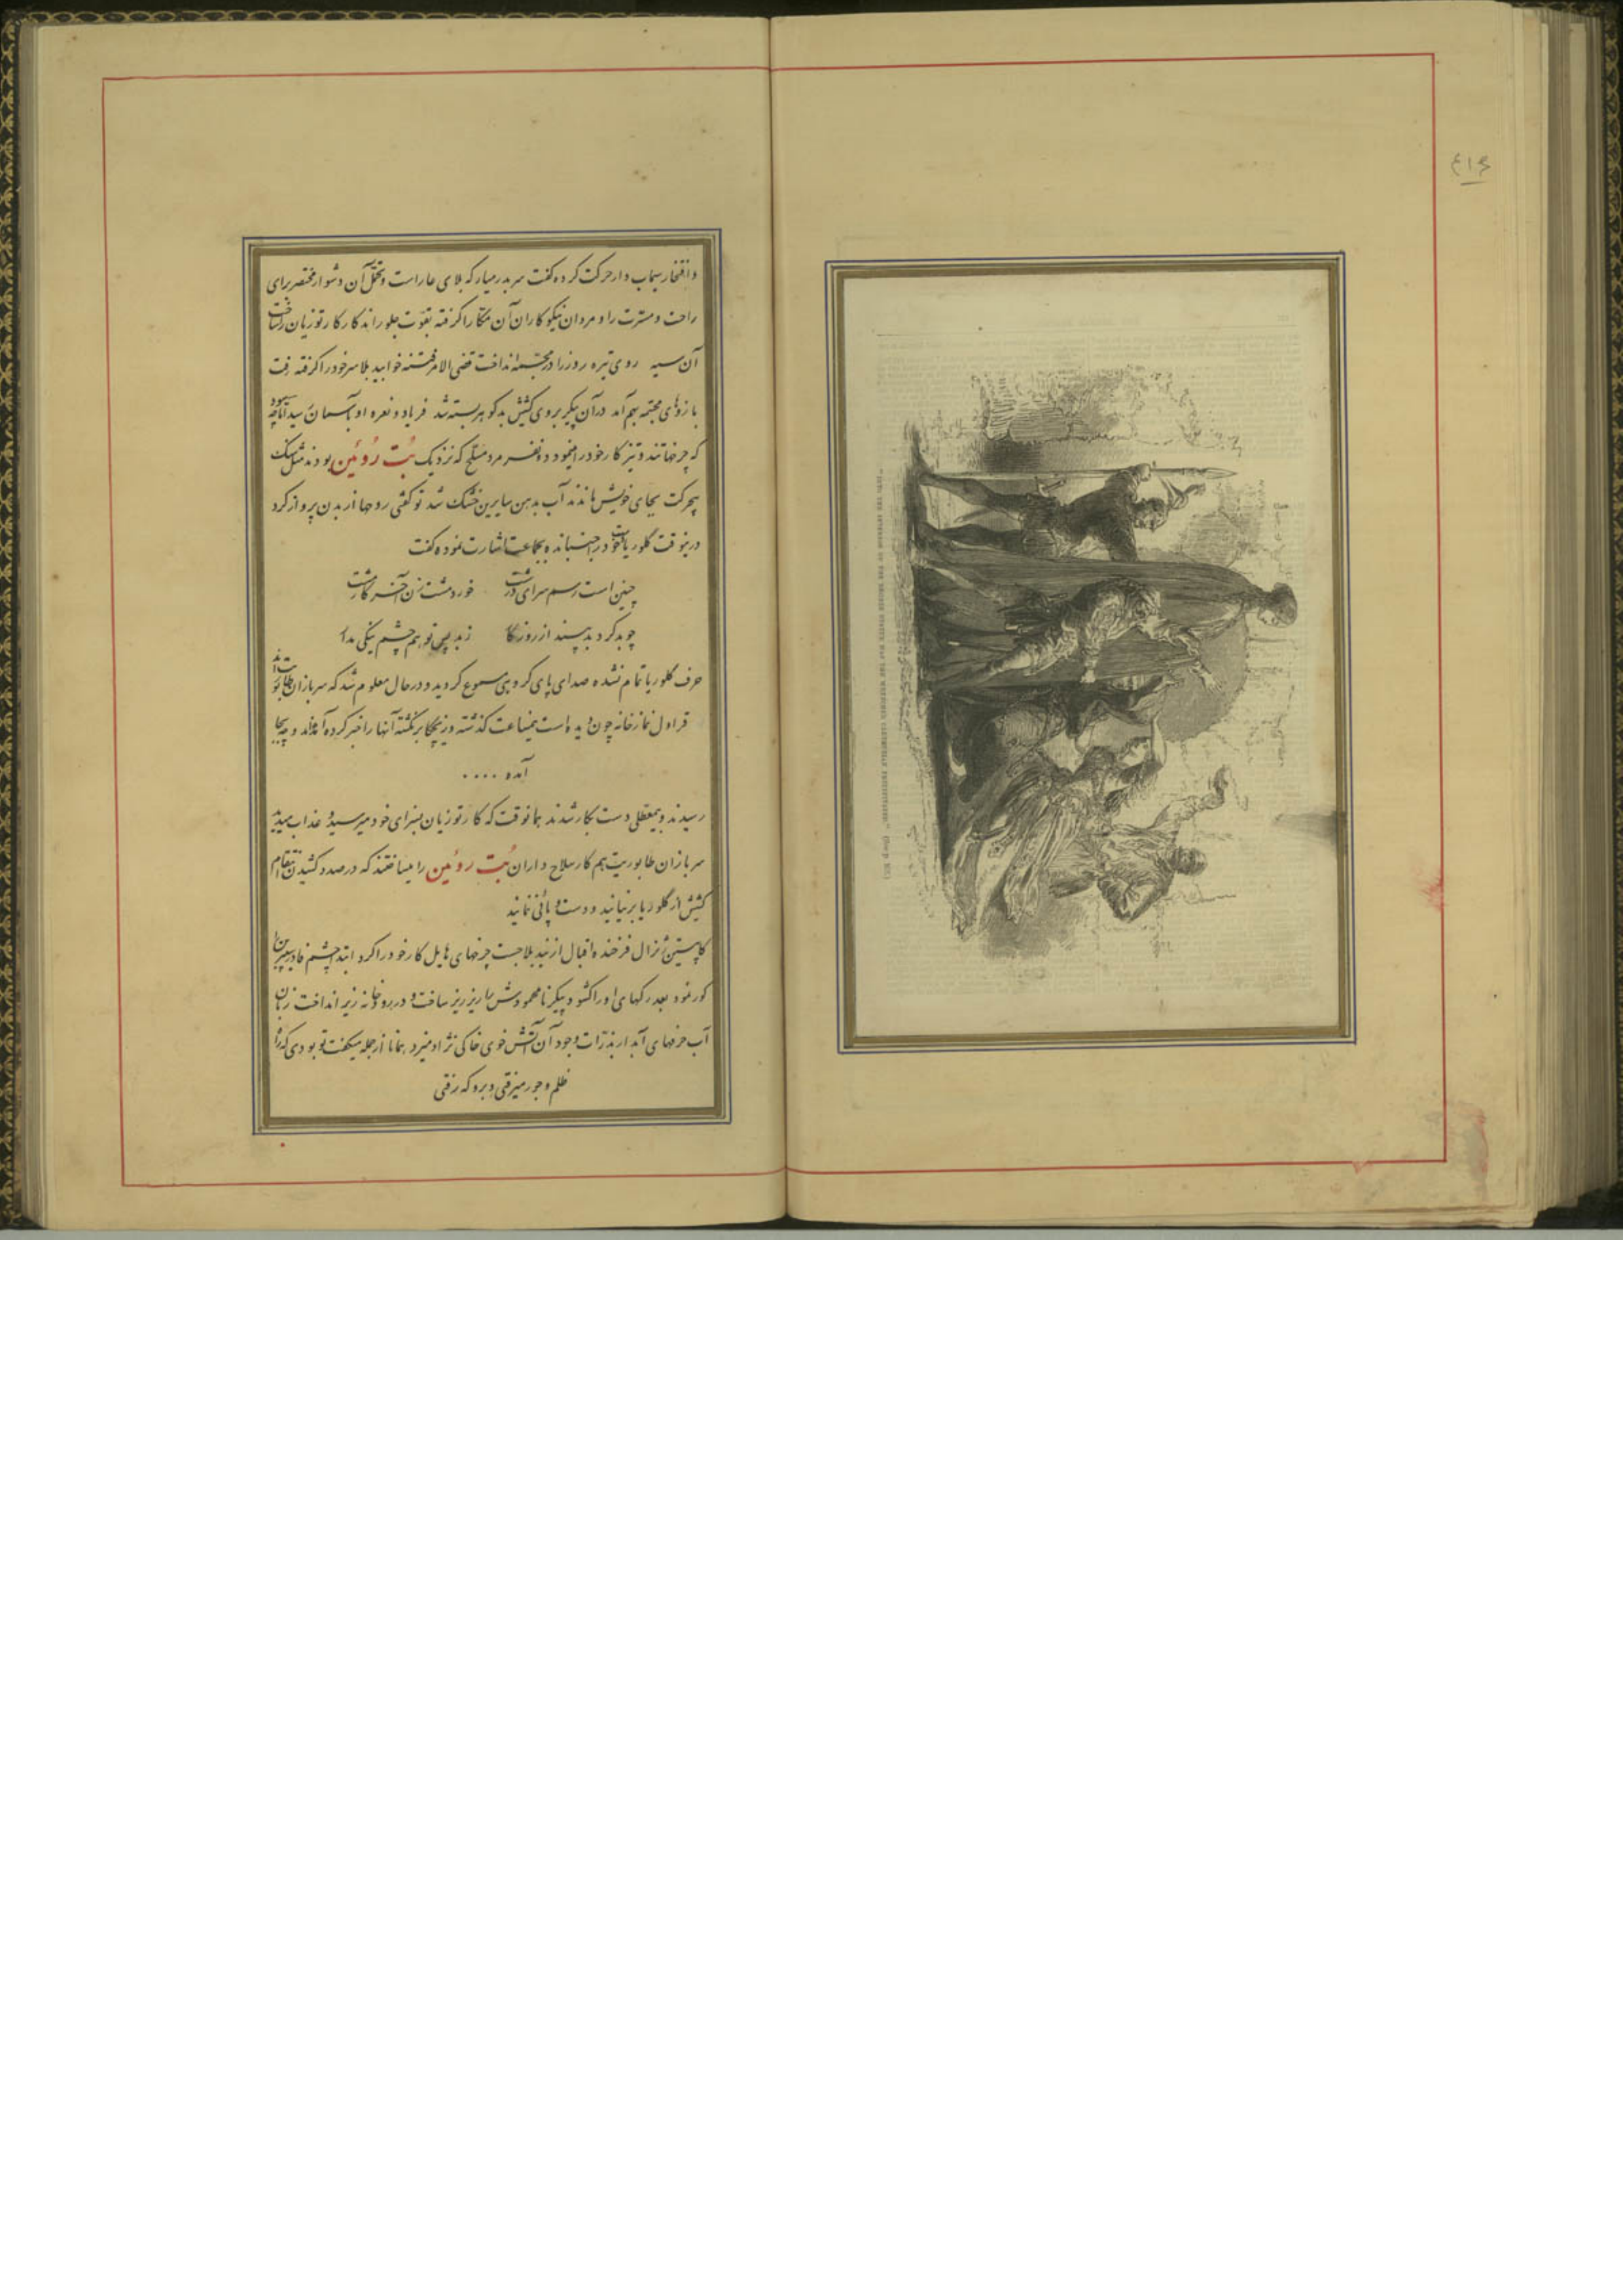 ۴۱۴
و افتخار سیماب وار حرکت کرده گفت سر بدر میار که بلای ما را است و تحمل آن دشوار مختصر برای
راحت و مسرت راد مردان نیکو کاران آن مکار را گرفته بقوت جلو راندند کار کارتوزیان را ساخت
آن سیه روی تیره روز را در مجسمه انداخت قضی الامر فتنه خوابید بلا سر خود را گرفته رفت
بازوهای مجسمه بهم آمد در آن پیکر بروی کشیش بدگوهر بسته شد فریاد و نعره او بآسمان رسید اما چه سود
که چرخها تند و تیز کار خود را مینمود دو نفر مرد مسلح که نزدیک بُت روُئین بودند مثل سنک
بیحرکت بجای خویش ماندند آب بدهن سایرین خشک شد تو گفتی روحها از بدن پرواز کرد
درینوقت گلوریا دست خود را جنبانده بجماعت اشارت نموده گفت
چنین است رسم سرای درشت خورد مشت زن آخر کار مشت
چو بد کرد بد بیند از روزگار ز بد پس تو هم چشم نیکی مدار
حرف گلوریا تمام نشده صدای پای گروهی مسموع گردید و در حال معلوم شد که سربازان طابوریت اند
قراول نمازخانه چون دیده است نیمساعت گذشته و زیچکا برنگشته آنها را خبر کرده آمده‌اند و چه بجا
آمده ....
رسیدند و بیمعطلی دست بکار شدند همانوقت که کارتوزیان بسزای خود میرسید و عذاب میدید
سربازان طابوریت هم کار سلاح داران بُت روئین را میساختند که درصدد کشیدن انتقام
کشیش از گلوریا برنیایند و دست و پائی ننمایند
کاپستین ژنرال فرخنده اقبال ازنید بلا جست چرخهای هایل کار خود را کرد ابتدا چشم فادر سیپرین را
کور نمود بعد رگهای او را گشود پیکر نامحمودش را ریز ریز ساخت و در رودخانه زیر انداخت زبان
آب حرفهای آبدار بذرات وجود آن آتش خوی خاکی نژاد میزد همانا از جمله میگفت تو بودی که راه
ظلم و جور میرفتی و برو که رفتی